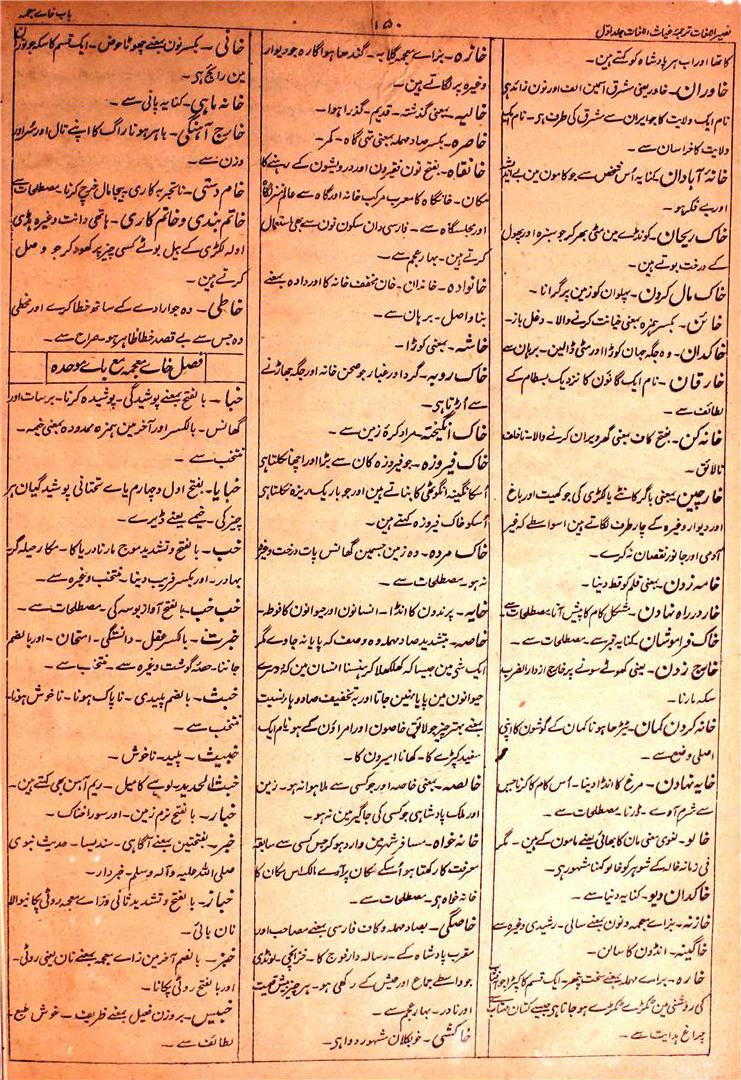 نصیر اللغات ترجمۂ غیاث اللغات جلد اول
۱۵۰
باب خاے معجمہ
کا تھا اور اب ہر بادشاہ کو کہتے ہین۔
خاوران۔ خاور یعنی مشرق آمین الف اور نون زائد ہی
نام ایک ولایت کا جو ایران سے مشرق کی طرف ہے۔ نام
ولایت کا خراسان سے۔
خانہ آبادان۔ کنایہ اُس شخص سے جو کامون مین
اور بے فکر ہو۔
خاک ریحان۔ کونڈے مین مٹی بھر کر جو سبزہ اور پھول
کے درخت بوتے ہین۔
خاک مال کردن۔ پہلوان کو زمین پر گرانا۔
خائن۔ بکسر ہمزہ بمعنی خیانت کرنے والا۔ دغل باز۔
خاکدان۔ وہ جگہ جہان کوڑا اور مٹی ڈالین۔ برہان سے
خارقان۔ نام ایک گانؤن کا نزدیک بسطام کے
لطائف سے۔
خانہ کن۔ بفتح کاف بمعنی گھر ویران کرنے والا۔ ناخلف
نالائق۔
خارچین۔ یعنی باگر کانٹے یا لکڑی کی جو کھیت اور باغ
اور دیوار وغیرہ کے چار طرف لگاتے ہین اسواسطے کہ غیر
آدمی اور جانور نقصان نہ کرے۔
خامہ زدن۔ یعنی قلم کو قط دینا۔
خار در راہ نہادن۔ مشکل کام کا پیش آنا مصطلحات سے
خاک فراموشان۔ کنایہ قبر سے مصطلحات سے۔
خارج زدن۔ یعنی کھوٹے سونے پر خارج از دار الضرب
سکہ مارنا۔
خانہ کردن کمان۔ ٹیڑھا ہونا کمان کے گوشون کا اپنی
اصلی وضع سے۔
خایہ نہادن۔ مرغ کا انڈا دینا۔ اُس کام کا کرنا جسمین
سے شرم آوے۔ ڈرنا۔ مصطلحات سے۔
خالو۔ لغوی معنی مان کا بھائی یعنے مامون کے ہین۔ مگر
فی زمانہ خالہ کے شوہر کو خالو کہنا مشہور ہی۔
خاکدان دیو۔ کنایہ دنیا سے۔
خازنہ۔ بزاے معجمہ و نون بمعنے سالی۔ رشیدی وغیرہ سے
خاگینہ۔ انڈون کا سالن۔
خارہ۔ براے مہملہ بمعنے سخت پتھر۔ ایک قسم کا کپڑا جو
کی روشنی مین ٹکڑے ٹکڑے ہو جاتا ہی جیسے کتان
چراغ ہدایت سے۔
خازہ۔ بزاے معجمہ گلابہ۔ گندھا ہوا گارہ جو دیوار
وغیرہ پر لگاتے ہین۔
خالیہ۔ بمعنی گذشتہ۔ قدیم۔ گذرا ہوا۔
خاصرہ۔ بکسر صاد مہملہ بمعنی تہی گاہ۔ کمر۔
خانقاہ۔ بفتح نون فقیرون اور درویشون کے رہنے کا
مکان۔ خانگاہ کا معرب مرکب خانہ اور گاہ سے
اور مجلس گاہ سے۔ فارسی دان سکون نون سے بھی استعمال
کرتے ہین۔ بہار عجم سے۔
خانوادہ۔ خاندان۔ خان مخفف خانہ کا اور دادہ بمعنے
بنا و اصل۔ برہان سے۔
خاشہ۔ بمعنی کوڑا۔
خاک روبہ۔ گرد اور غبار جو صحن خانہ اور جگہ جھاڑنے
سے اُڑتا ہی۔
خاک انگیختہ۔ مراد کرۂ زمین سے۔
خاک فیروزہ۔ جو فیروزہ کان سے بڑا اور اچھا نکلتا ہی
اُسکا نگینہ انگوٹھی کا بناتے ہین اور جو باریک ریزہ نکلتا ہی
اُسکو خاک فیروزہ کہتے ہین۔
خاک مردہ۔ وہ زمین جسمین گھانس پات درخت وغیرہ
نہ ہو۔ مصطلحات سے۔
خایہ۔ پرندون کا انڈا۔ انسانون اور حیوانون کا فوطہ۔
خاصہ۔ بتشدید صاد مہملہ وہ وصف کہ پایا نہ جاوے مگر
ایک شئ مین جیسا کہ کھلکھلا کر ہنسنا انسان مین کہ دوسرے
حیوانون مین پایا نہین جاتا اور بہ تخفیف صاد
بمعنے بہتر چیز جو لائق خاصون اور امراؤن کے ہو نام ایک
سفید کپڑے کا۔ کھانا امیرون کا۔
خالصہ۔ بمعنی خاصہ اور جو کسی سے ملا ہوا نہ ہو۔ زمین
اور ملک پادشاہی جو کسی کی جاگیر مین نہ ہو۔
خانہ خواہ۔ مسافر شہر مین وارد ہو کر جس کسی سے سابقہ
معرفت کا رکھتا ہو اُسکے مکان پر آوے۔ مالک اس مکان کا
خانہ خواہ ہی۔ مصطلحات سے۔
خاصگی۔ بصاد مہملہ و کاف فارسی بمعنے مصاحب اور
مقرب پادشاہ کے۔ رسالہ دار فوج کا۔ خزانچی۔ لونڈی
جو واسطے جماع اور عیش کے رکھی ہو۔ ہر چیز بیش قیمت
اور نادر۔ بہار عجم سے۔
خاکشی۔ خوبکلان مشہور دوا ہی۔
خانی۔ بکسر نون بمعنے چھوٹا حوض۔ ایک قسم کا سکہ جو
مین رائج ہی۔
خانہ ماہی۔ کنایہ پانی سے۔
خارج آہنگی۔ باہر ہونا راگ کا اپنے تال اور سُر اور
وزن سے۔
خام دستی۔ ناتجربہ کاری بیجا مال خرچ کرنا۔ مصطلحات سے
خاتم بندی و خاتم کاری۔ ہاتھی دانت وغیرہ ہڈی
اولہ لکڑی کے بیل بوٹے کسی چیز پر کھود کر جو وصل
کرتے ہین۔
خاطی۔ وہ جو ارادے کے ساتھ خطا کرے اور مخطی
وہ جس سے بے قصد خطا ظاہر ہو۔ صراح سے۔
فصل خاے معجمہ مع باے موحدہ
خبا۔ بالفتح بمعنے پوشیدگی۔ پوشیدہ کرنا۔ برسات اور
گھانس۔ بالکسر اور آخر مین ہمزہ ممدودہ بمعنی خیمہ۔
منتخب سے۔
خبایا۔ بفتح اول و چہارم یاے تحتانی پوشیدگیان ہر
چیز کی۔ خیمے یعنے ڈیرے۔
خب۔ بالفتح و تشدید موج مارنا دریا کا۔ مکار حیلہ گر۔
بہادر۔ اور بکسر فریب دینا۔ منتخب وغیرہ سے۔
خب خب۔ بالفتح آواز بوسہ کی۔ مصطلحات سے۔
خبرت۔ بالکسر عقل۔ دانستگی۔ امتحان۔ اور بالضم
جاننا۔ حصۂ گوشت وغیرہ سے۔ منتخب سے۔
خبث۔ بالضم پلیدی۔ ناپاک ہونا۔ ناخوش ہونا۔
منتخب سے۔
خبیث۔ پلید۔ ناخوش۔
خبث الحدید۔ لوہے کا میل۔ ریم آہن بھی کہتے ہین۔
خبار۔ بالفتح نرم زمین۔ اور سوراخناک۔
خبر۔ بفتحتین بمعنے آگاہی۔ سندیسا۔ حدیث نبوی
صلی اللہ علیہ و آلہ وسلم۔ خبردار۔
خباز۔ بالفتح و تشدید ثانی و زاے معجمہ روٹی پکانیوالا
نان بائی۔
خبز۔ بالضم آخر مین زاے معجمہ بمعنے نان یعنی روٹی۔
اور بالفتح روٹی پکانا۔
خبیس۔ بروزن فعیل بمعنے ظریف۔ خوش طبع۔
لطائف سے۔